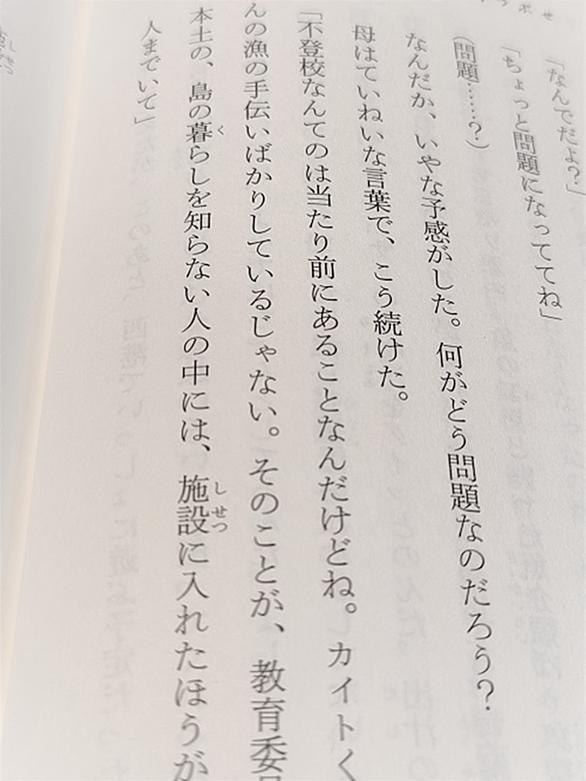 「なんでだよ？」
「ちょっと問題になっててね」
（問題……？）
なんだか、いやな予感がした。何がどう問題なのだろう？
母はていねいな言葉で、こう続けた。
「不登校なんてのは当たり前にあることなんだけどね。カイトく
んの漁の手伝いばかりしているじゃない。そのことが、教育委
本土の、島の暮らしを知らない人の中には、施設に入れたほうが
人までいて」